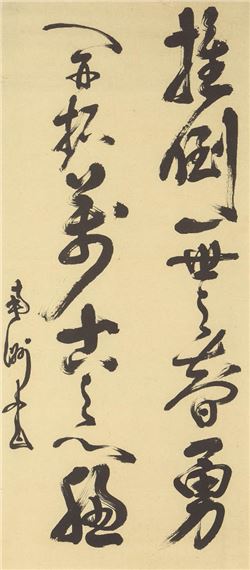 推倒一世之智勇
開拓萬古之心胸
南洲書